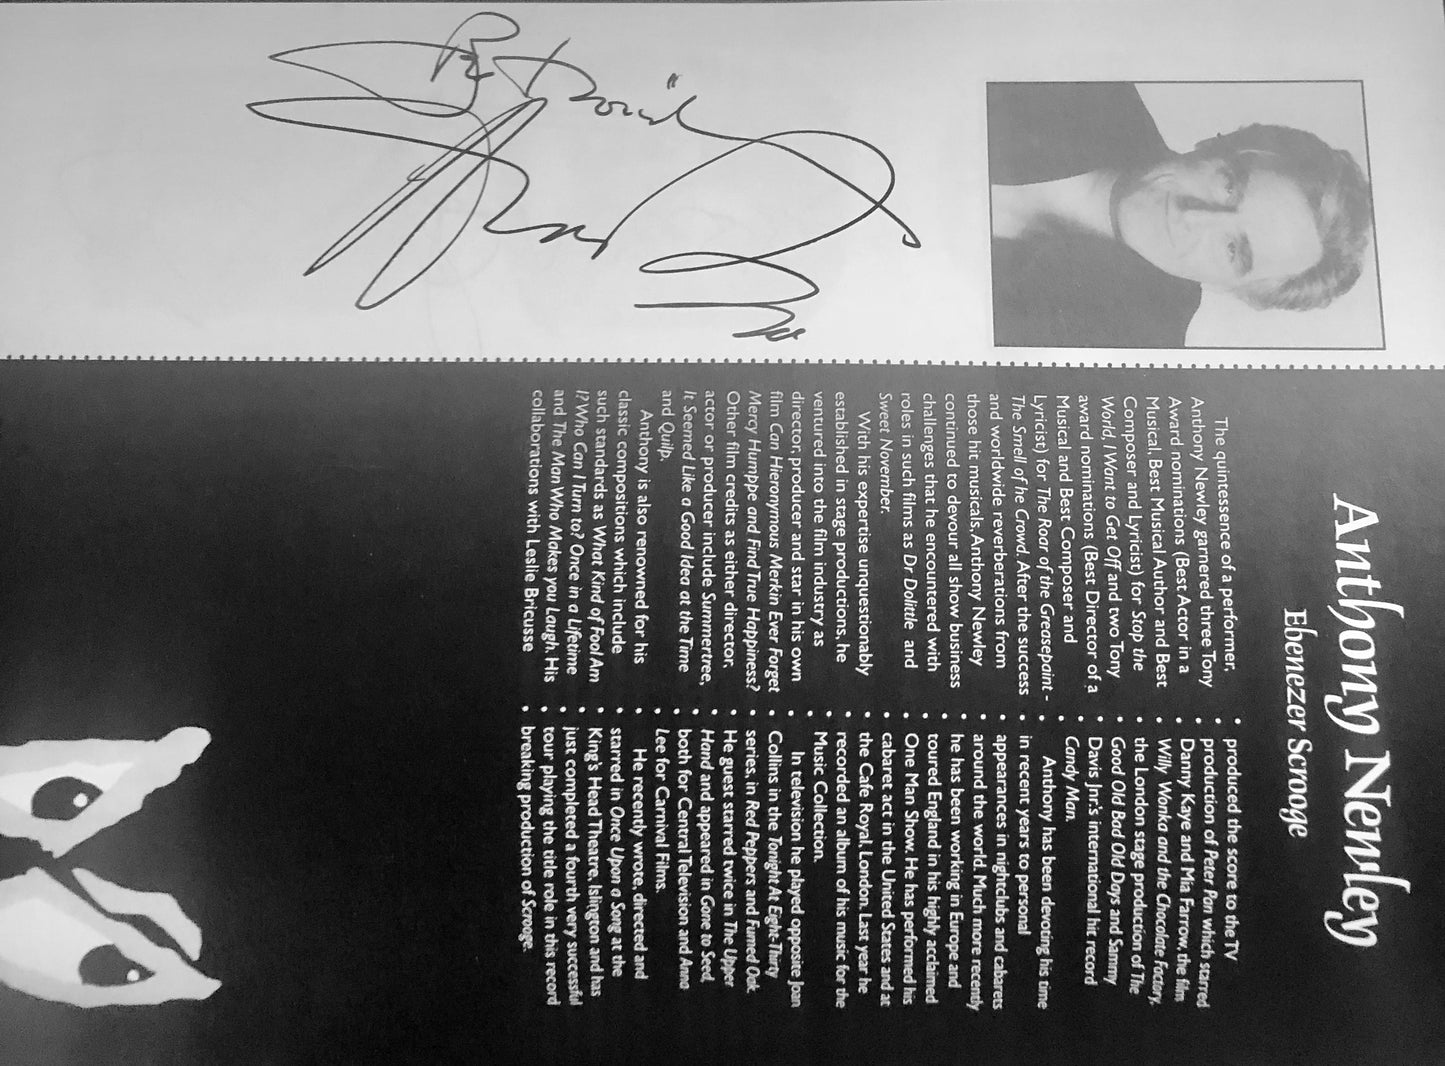 To David
Anthony Newley
Ebenezer Scrooge
The quintessence of a performer,
Anthony Newley garnered three Tony
Award nominations (Best Actor in a
Musical, Best Musical Author and Best
Composer and Lyricist) for Stop the
World, I Want to Get Off and two Tony
award nominations (Best Director of a
Musical and Best Composer and
Lyricist) for The Roar of the Greasepaint -
The Smell of he Crowd. After the success
and worldwide reverberations from
those hit musicals, Anthony Newley
continued to devour all show business
challenges that he encountered with
roles in such films as Dr Dolittle and
Sweet November.
With his expertise unquestionably
established in stage productions, he
ventured into the film industry as
director, producer and star in his own
film Can Hieronymous Merkin Ever Forget
Mercy Humppe and Find True Happiness?
Other film credits as either director,
actor or producer include Summertree,
It Seemed Like a Good Idea at the Time
and Quilp.
Anthony is also renowned for his
classic compositions which include
such standards as What Kind of Fool Am
I? Who Can I Turn to? Once in a Lifetime
and The Man Who Makes you Laugh. His
collaborations with Leslie Bricusse
produced the score to the TV
production of Peter Pan which starred
Danny Kaye and Mia Farrow, the film
Willy Wonka and the Chocolate Factory,
the London stage production of The
Good Old Bad Old Days and Sammy
Davis Jnr.'s international hit record
Candy Man.
Anthony has been devoting his time
in recent years to personal
appearances in nightclubs and cabarets
around the world. Much more recently
he has been working in Europe and
toured England in his highly acclaimed
One Man Show. He has performed his
cabaret act in the United States and at
the Cafe Royal, London. Last year he
recorded an album of his music for the
Music Collection.
In television he played opposite Joan
Collins in the Tonight At Eight-Thirty
series, in Red Peppers and Fumed Oak.
He guest starred twice in The Upper
Hand and appeared in Gone to Seed,
both for Central Television and Anna
Lee for Carnival Films.
He recently wrote, directed and
starred in Once Upon a Song at the
King's Head Theatre, Islington and has
just completed a fourth very successful
tour playing the title role in this record
breaking production of Scrooge.